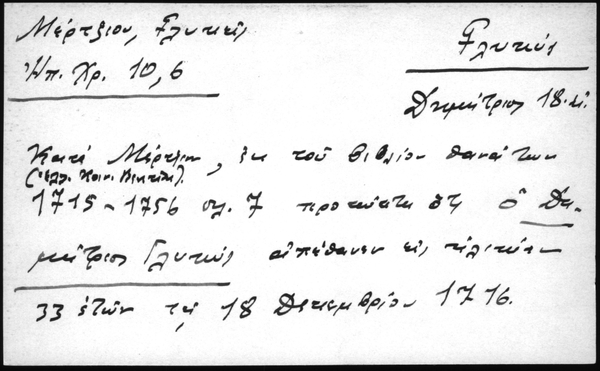 Μέρτζιου, Γλυκεῖς
Γλυκύς
Ἠπ. Χρ. 10, 6
Δημήτριος 18. αἰ.
Κατὰ Μέρτζιον, ἐκ τοῦ βιβλίου θανάτων
(Ἑλλ. Κοιν. Βενετίας).
1715-1756 σελ. 7 προκύπτει ὅτι ὁ Δη-
μήτριος Γλυκύς ἀπέθανεν εἰς ἡλικίαν
33 ἐτῶν τῇ 18 Δεκεμβρίου 1716.